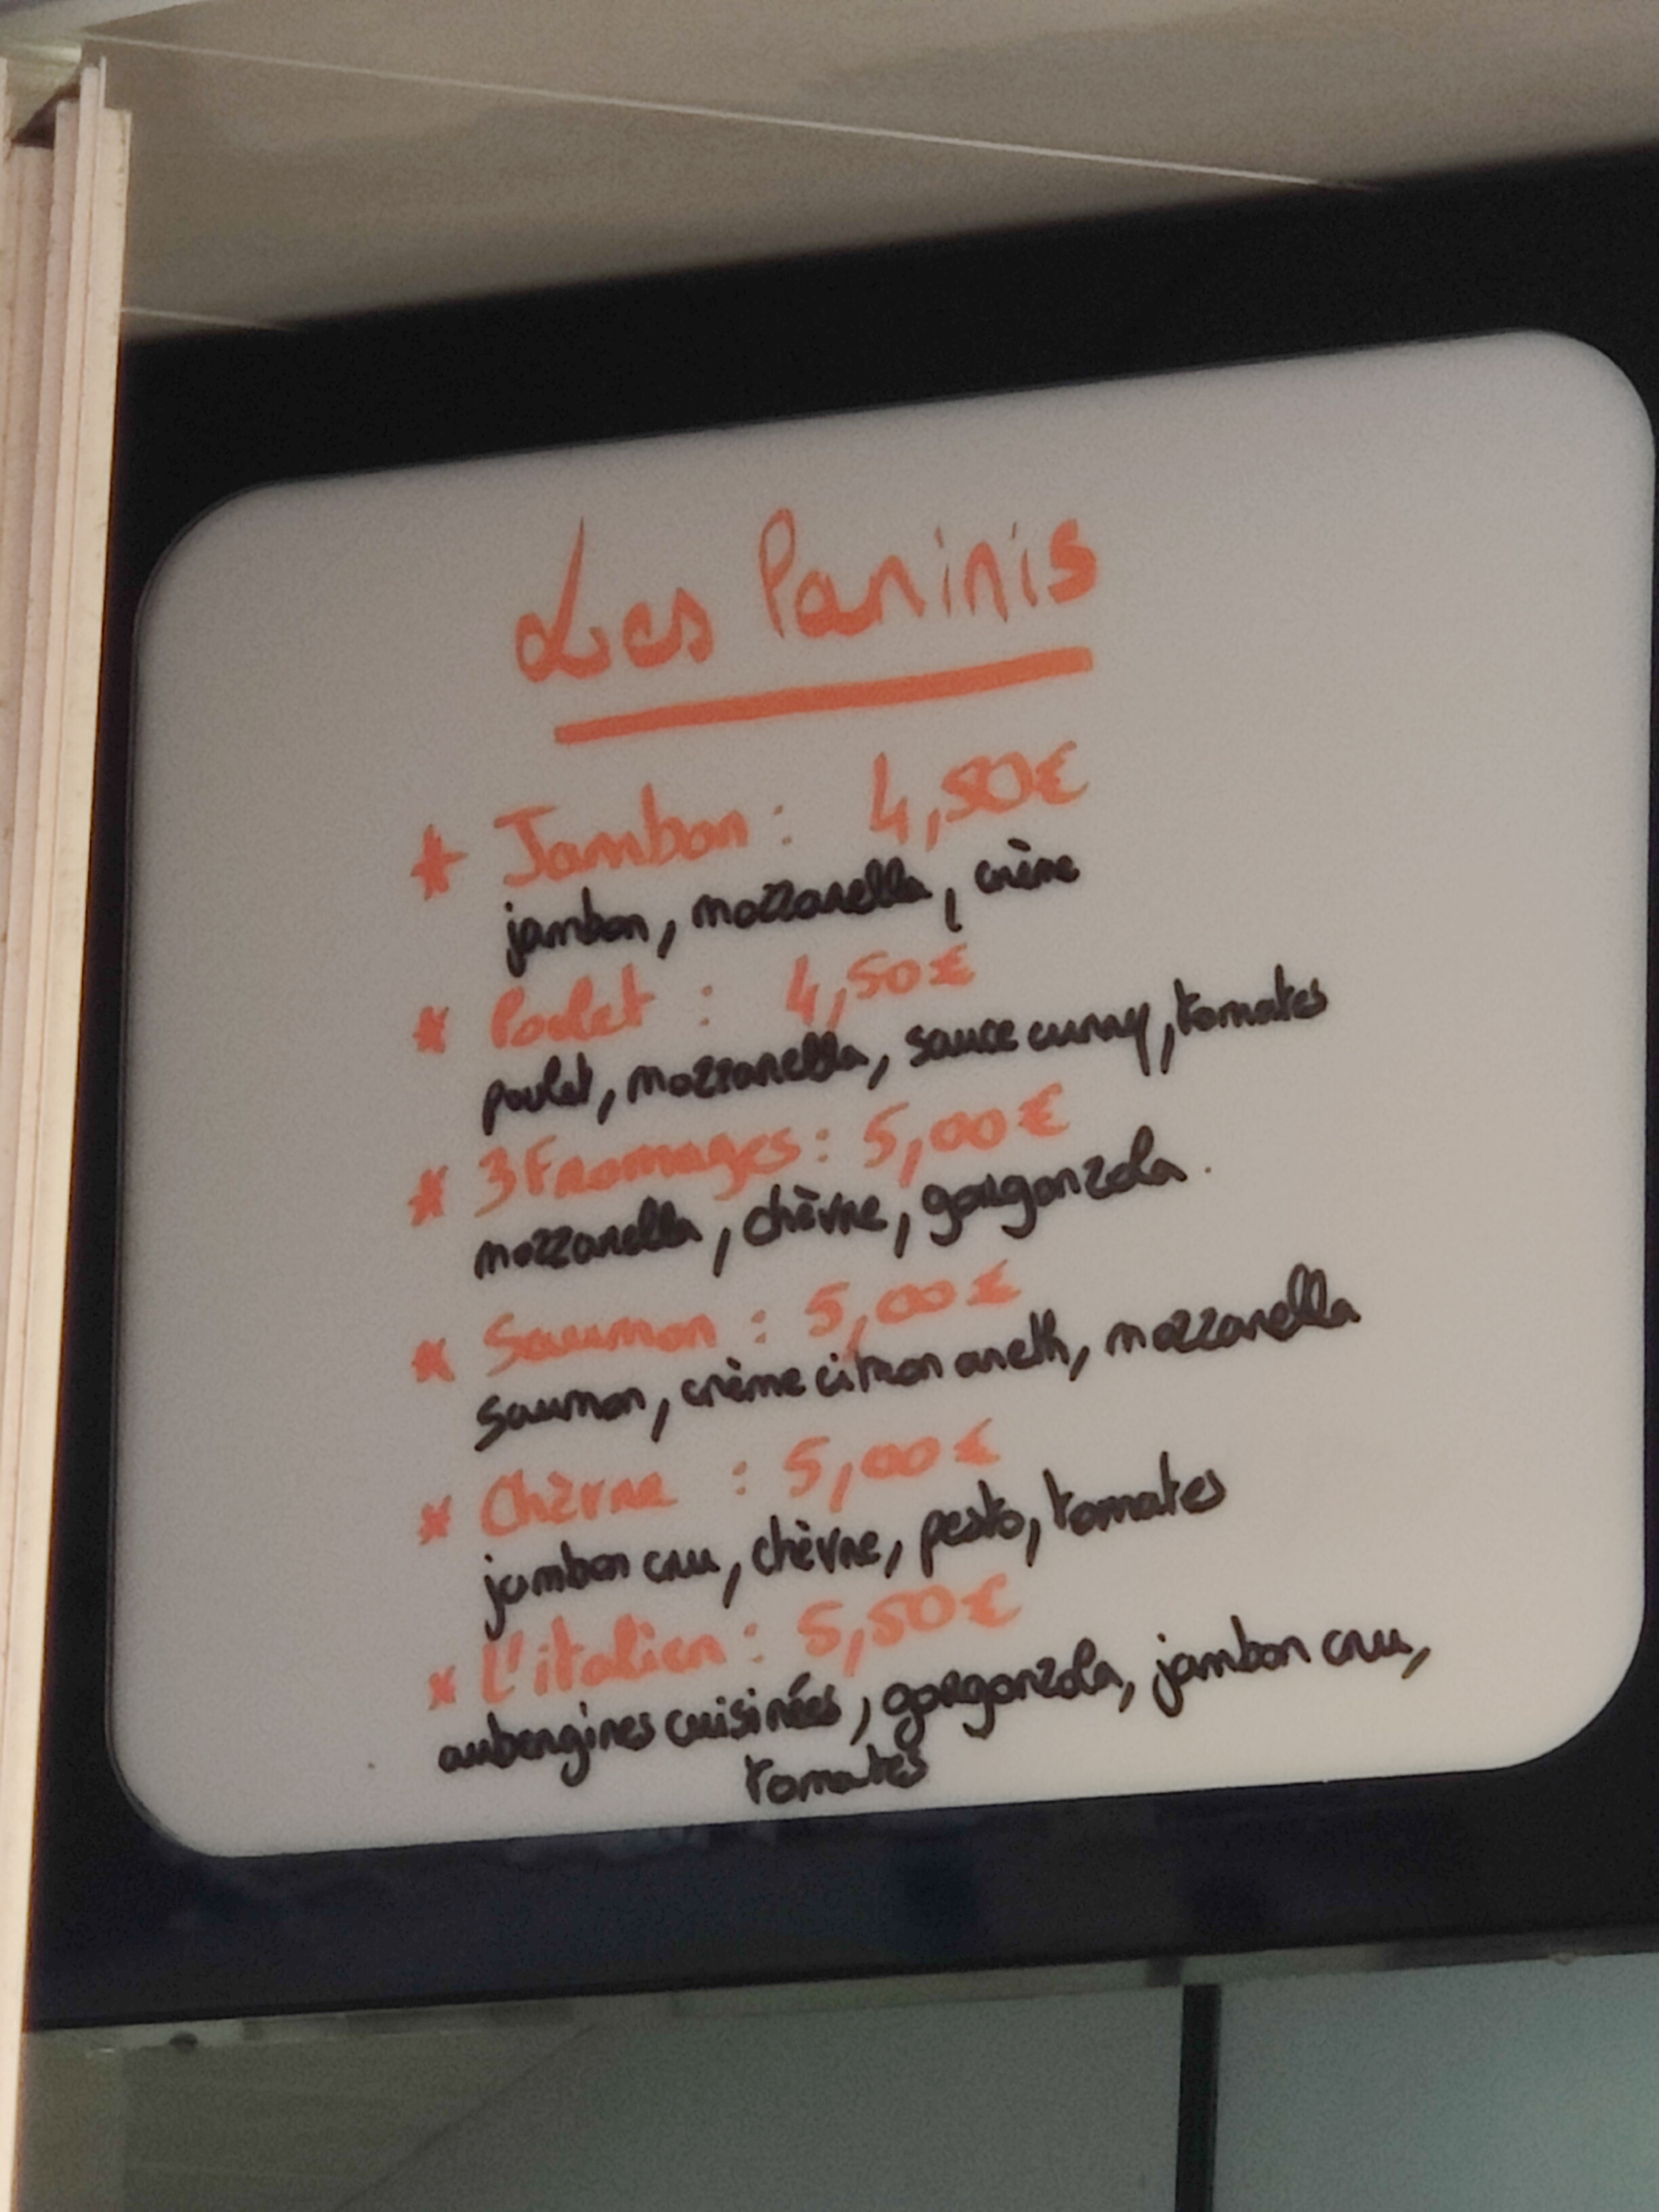 Les Paninis
* Jambon : 4,50€
jambon, mozzarella, crème
* Poulet : 4,50€
poulet, mozzarella, sauce curry, tomates
* 3 Fromages : 5,00€
mozzarella, chèvre, gorgonzola.
* Saumon : 5,00€
saumon, crème citron aneth, mozzarella
* Chèvre : 5,00€
jambon cru, chèvre, pesto, tomates
* L'italien : 5,50€
aubergines cuisinées, gorgonzola, jambon cru,
tomates